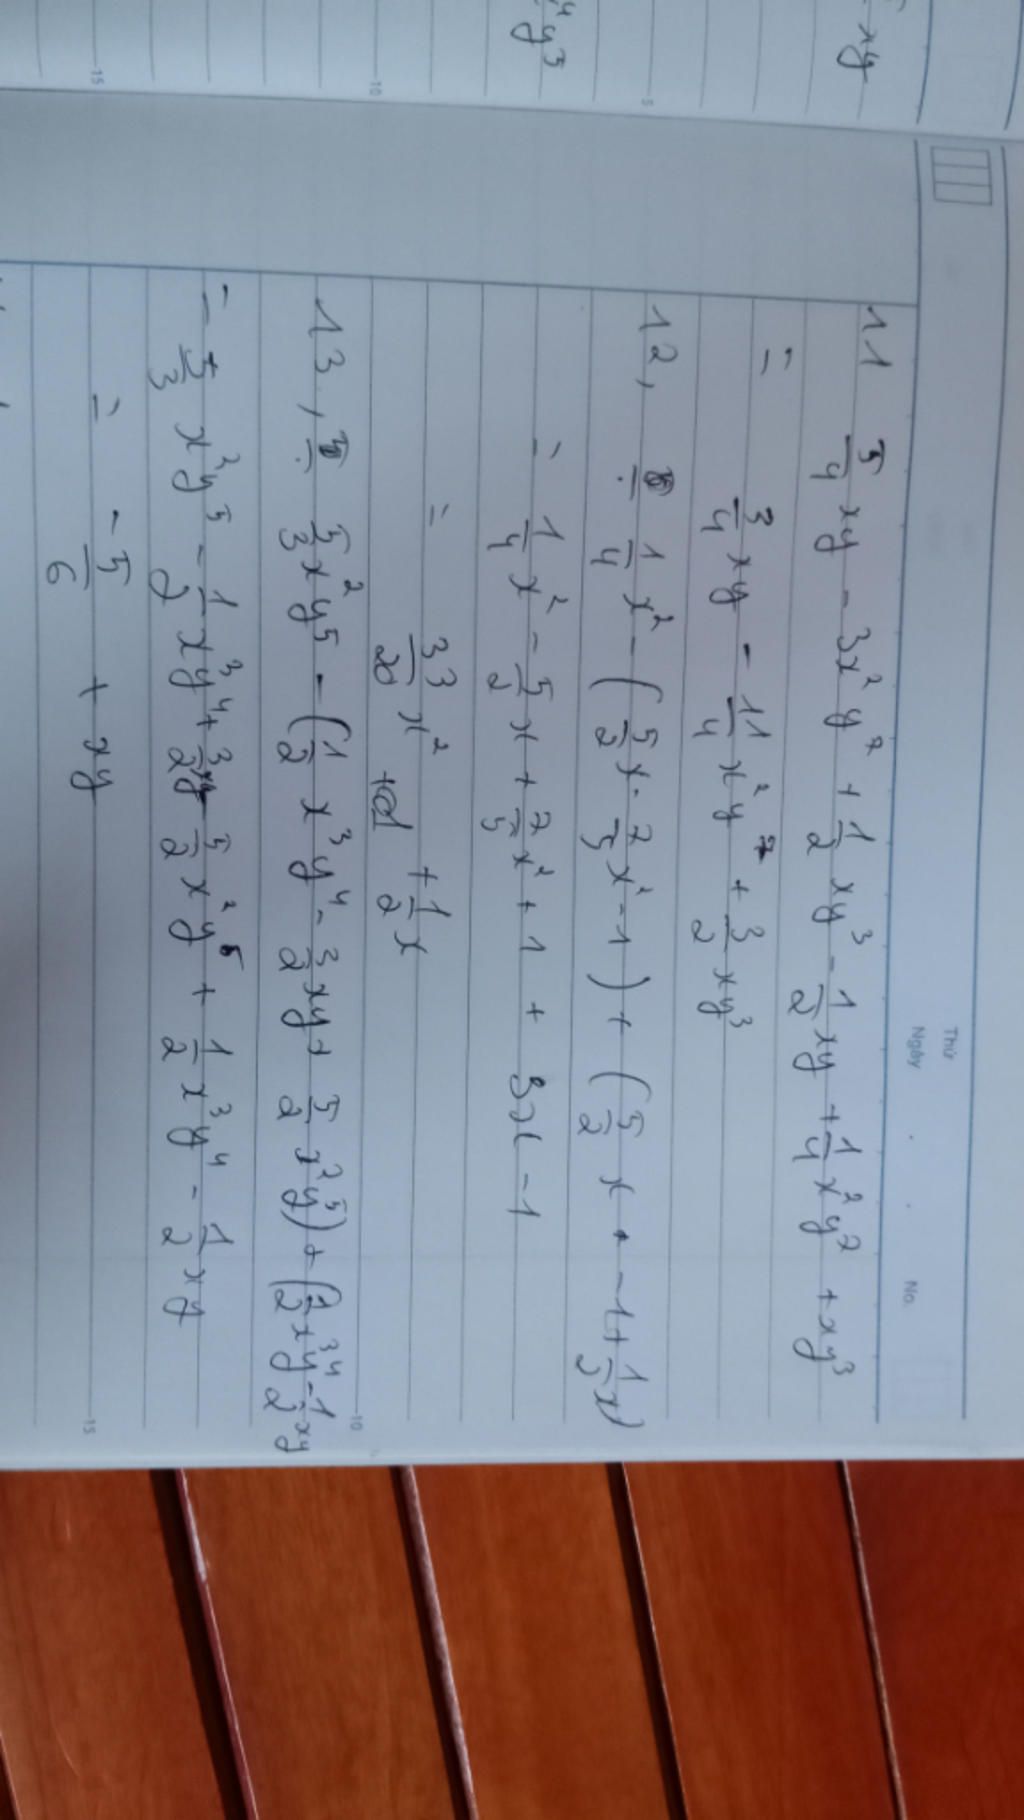 xy
y³
5
10
15
Thứ
Ngày . . No.
11 5/4 xy - 3x²y⁷ + 1/2 xy³ - 1/2 xy + 1/4 x²y⁷ + xy³
= 3/4 xy - 11/4 x²y⁷ + 3/2 xy³
12, 1/4 x² - (5/2 x - 7/5 x² - 1) + (5/2 x - 1 + 1/2 x)
= 1/4 x² - 5/2 x + 7/5 x² + 1 + 3x - 1
= 33/20 x² + 1/2 x
13, 5/3 x²y⁵ - (1/2 x³y⁴ - 3/2 xy + 5/2 x²y⁵) + (1/2 x³y⁴ - 1/2 xy
10
= 5/3 x²y⁵ - 1/2 x³y⁴ + 3/2 xy - 5/2 x²y⁵ + 1/2 x³y⁴ - 1/2 xy
= - 5/6 + xy
15